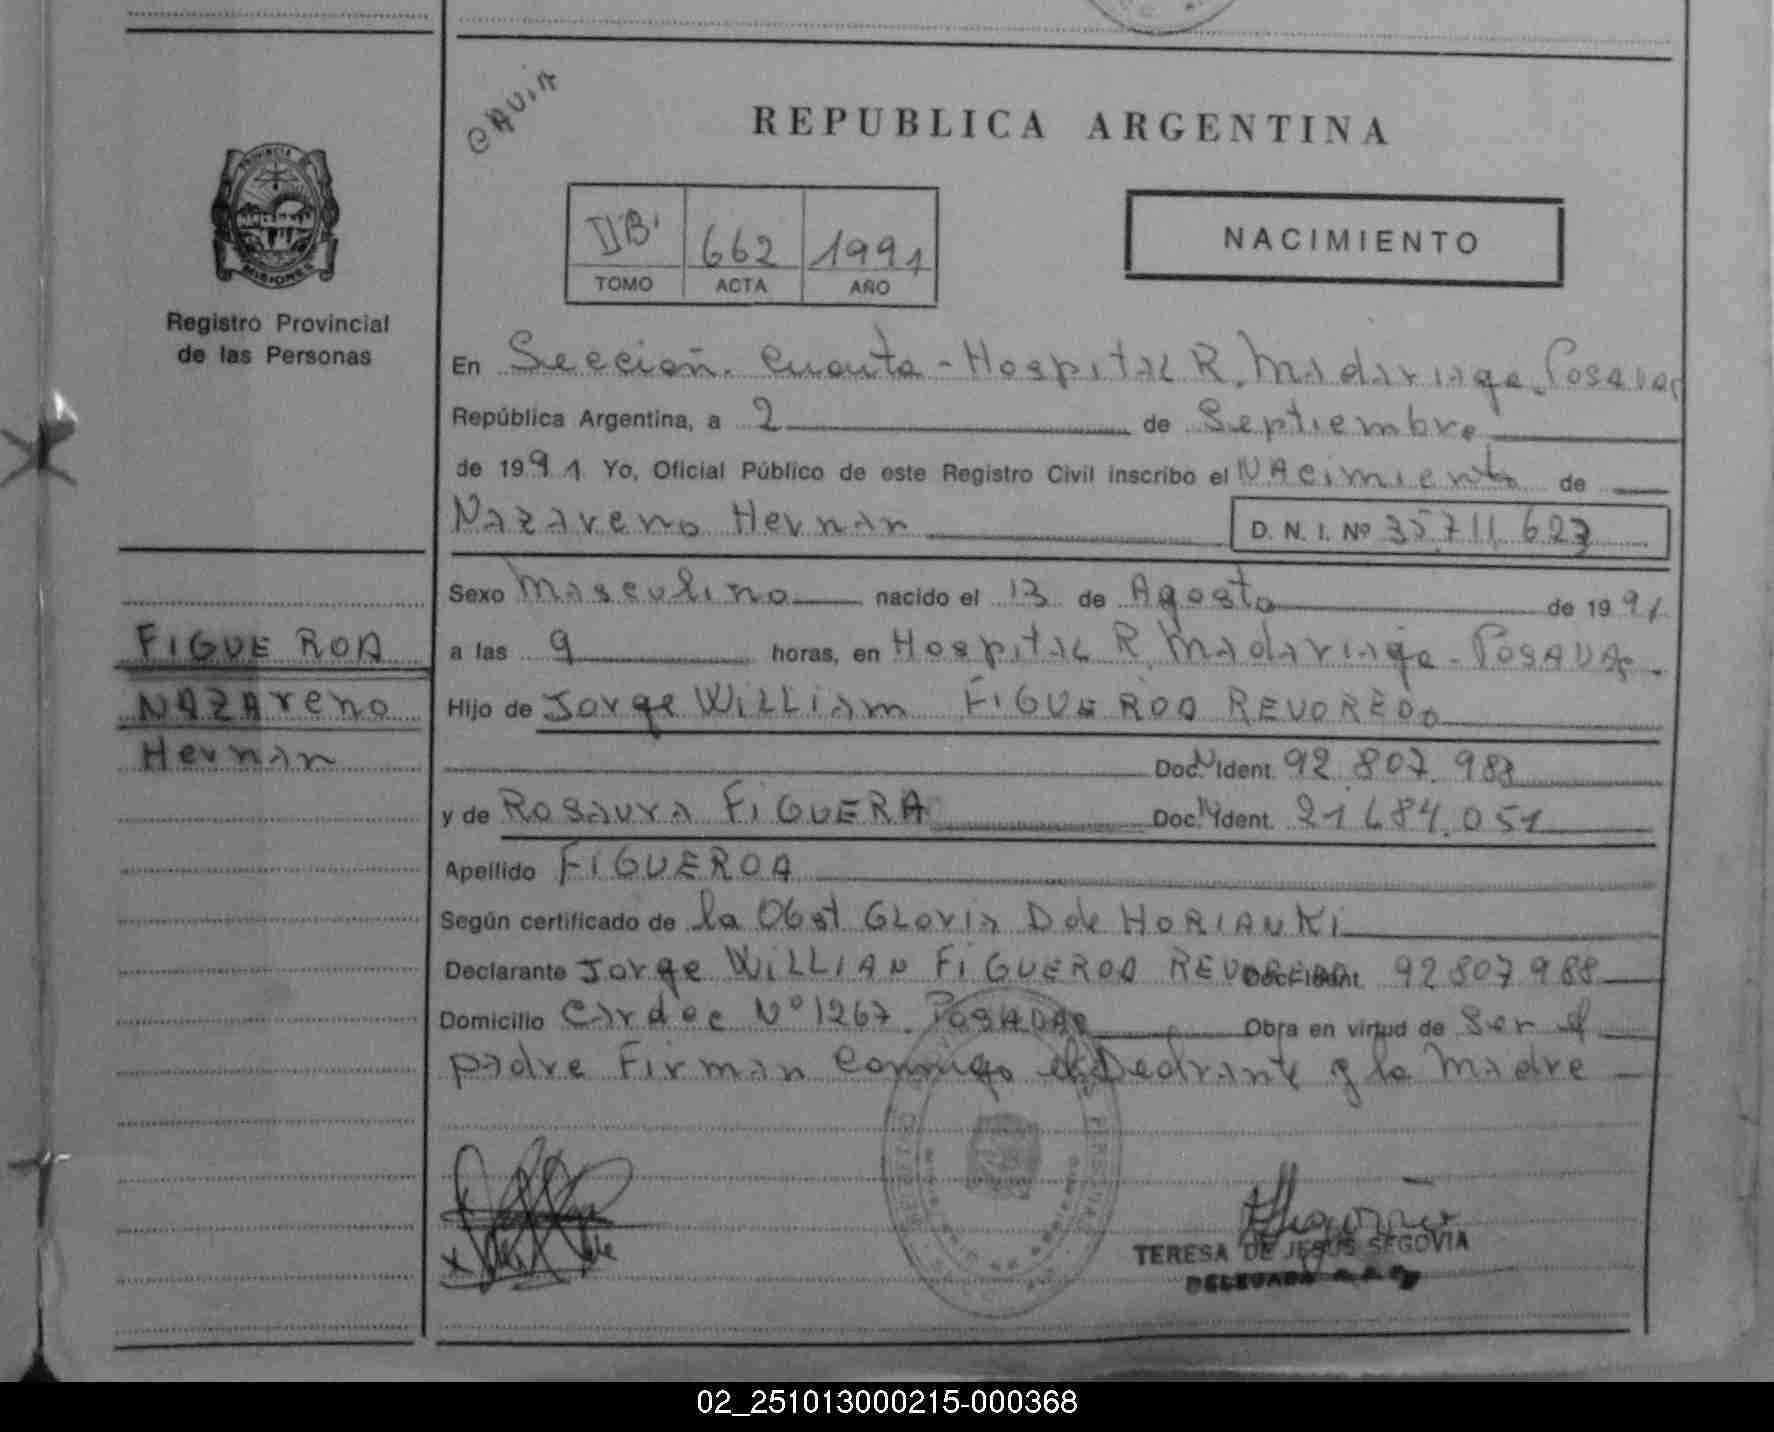 CAUIA
REPUBLICA ARGENTINA
PROVINCIA
MISIONES
Registro Provincial
de las Personas
IIB' 662 1991
TOMO ACTA AÑO
NACIMIENTO
En Sección Cuarta - Hospital R. Madariaga - Posadas
República Argentina, a 2 de Septiembre
de 1991 Yo, Oficial Público de este Registro Civil inscribo el Nacimiento de
Nazareno Hernan D. N. I. Nº 35.711.627
Sexo Masculino nacido el 13 de Agosto de 1991
a las 9 horas, en Hospital R. Madariaga - Posadas.
Hijo de Jorge William FIGUEROA REVOREDO
Doc. Ident. 92.807.988
y de Rosaura FIGUERA Doc. Ident. 21.684.051
Apellido FIGUEROA
Según certificado de la Obst Gloria D de HORIANKI
Declarante Jorge WILLIAN FIGUEROA Doc. Ident. 92807988
Domicilio Nº 1267. Posadas Obra en virtud de Ser el
padre Firman Conmigo el y la Madre
FIGUEROA
NAZAreno
Hernan
TERESA DE JESUS SEGOVIA
DELEGADA
02_251013000215-000368